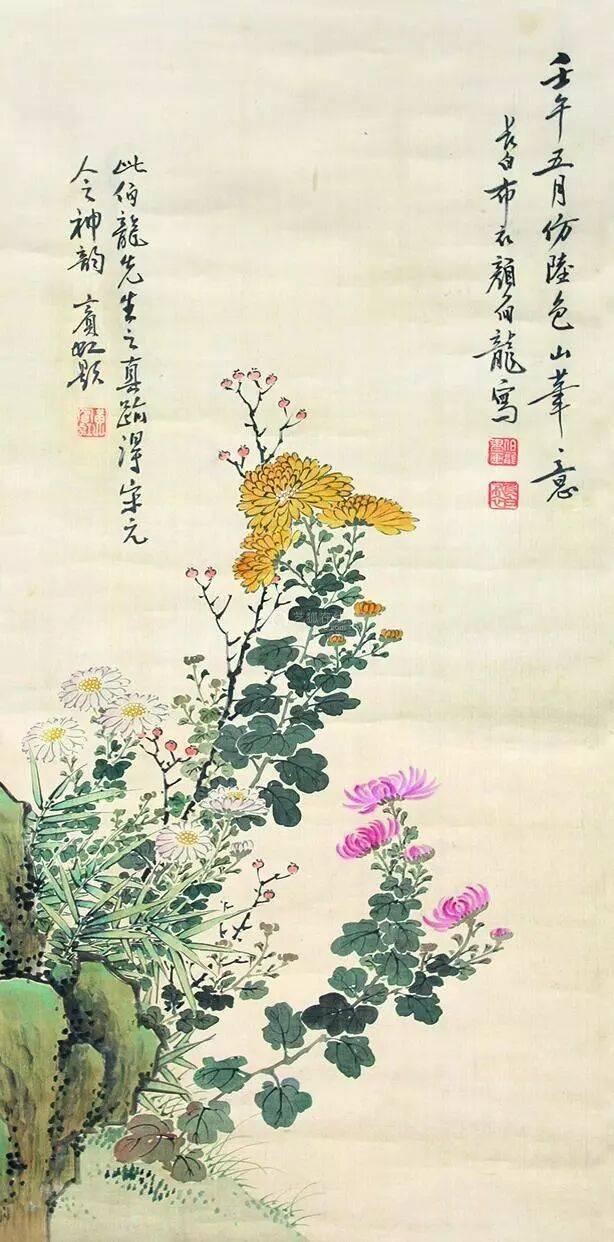 壬午五月仿陸包山筆意
長白布衣顏伯龍寫
此伯龍先生之真跡得宋元
人之神韵 賓虹題